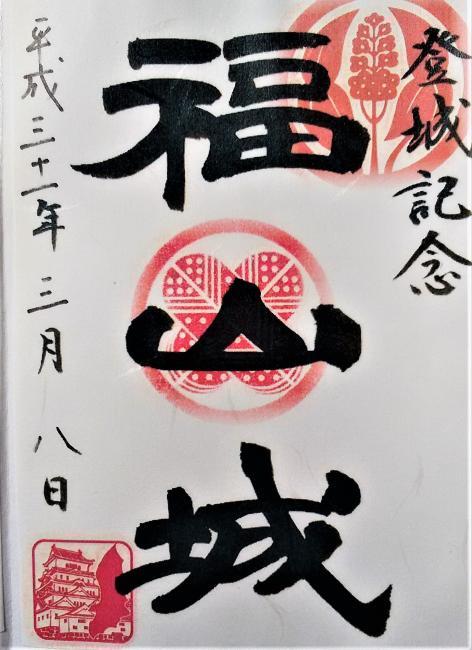 登城記念
福山城
平成三十一年三月八日